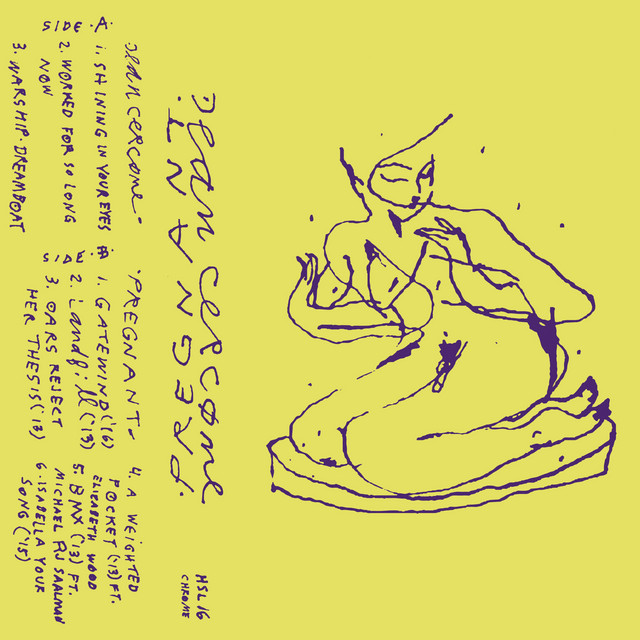 Dean Cercone
.PREGNANT.
HSL 16
CHROME
Dean Cercone-
SIDE .A.
1. SHINING IN YOUR EYES
2. WORKED FOR SO LONG
NOW
3. WARSHIP-DREAMBOAT
·PREGNANT-
SIDE B
1. GATEWIND('16)
2. Landfill('13)
3. OARS REJECT
HER THESIS('13)
4. A WEIGHTED
POCKET('13)FT.
ELIZABETH WOOD
5. BMX('13) FT.
MICHAEL RJ SAALMAN
6. ISABELLA YOUR
SONG('15)